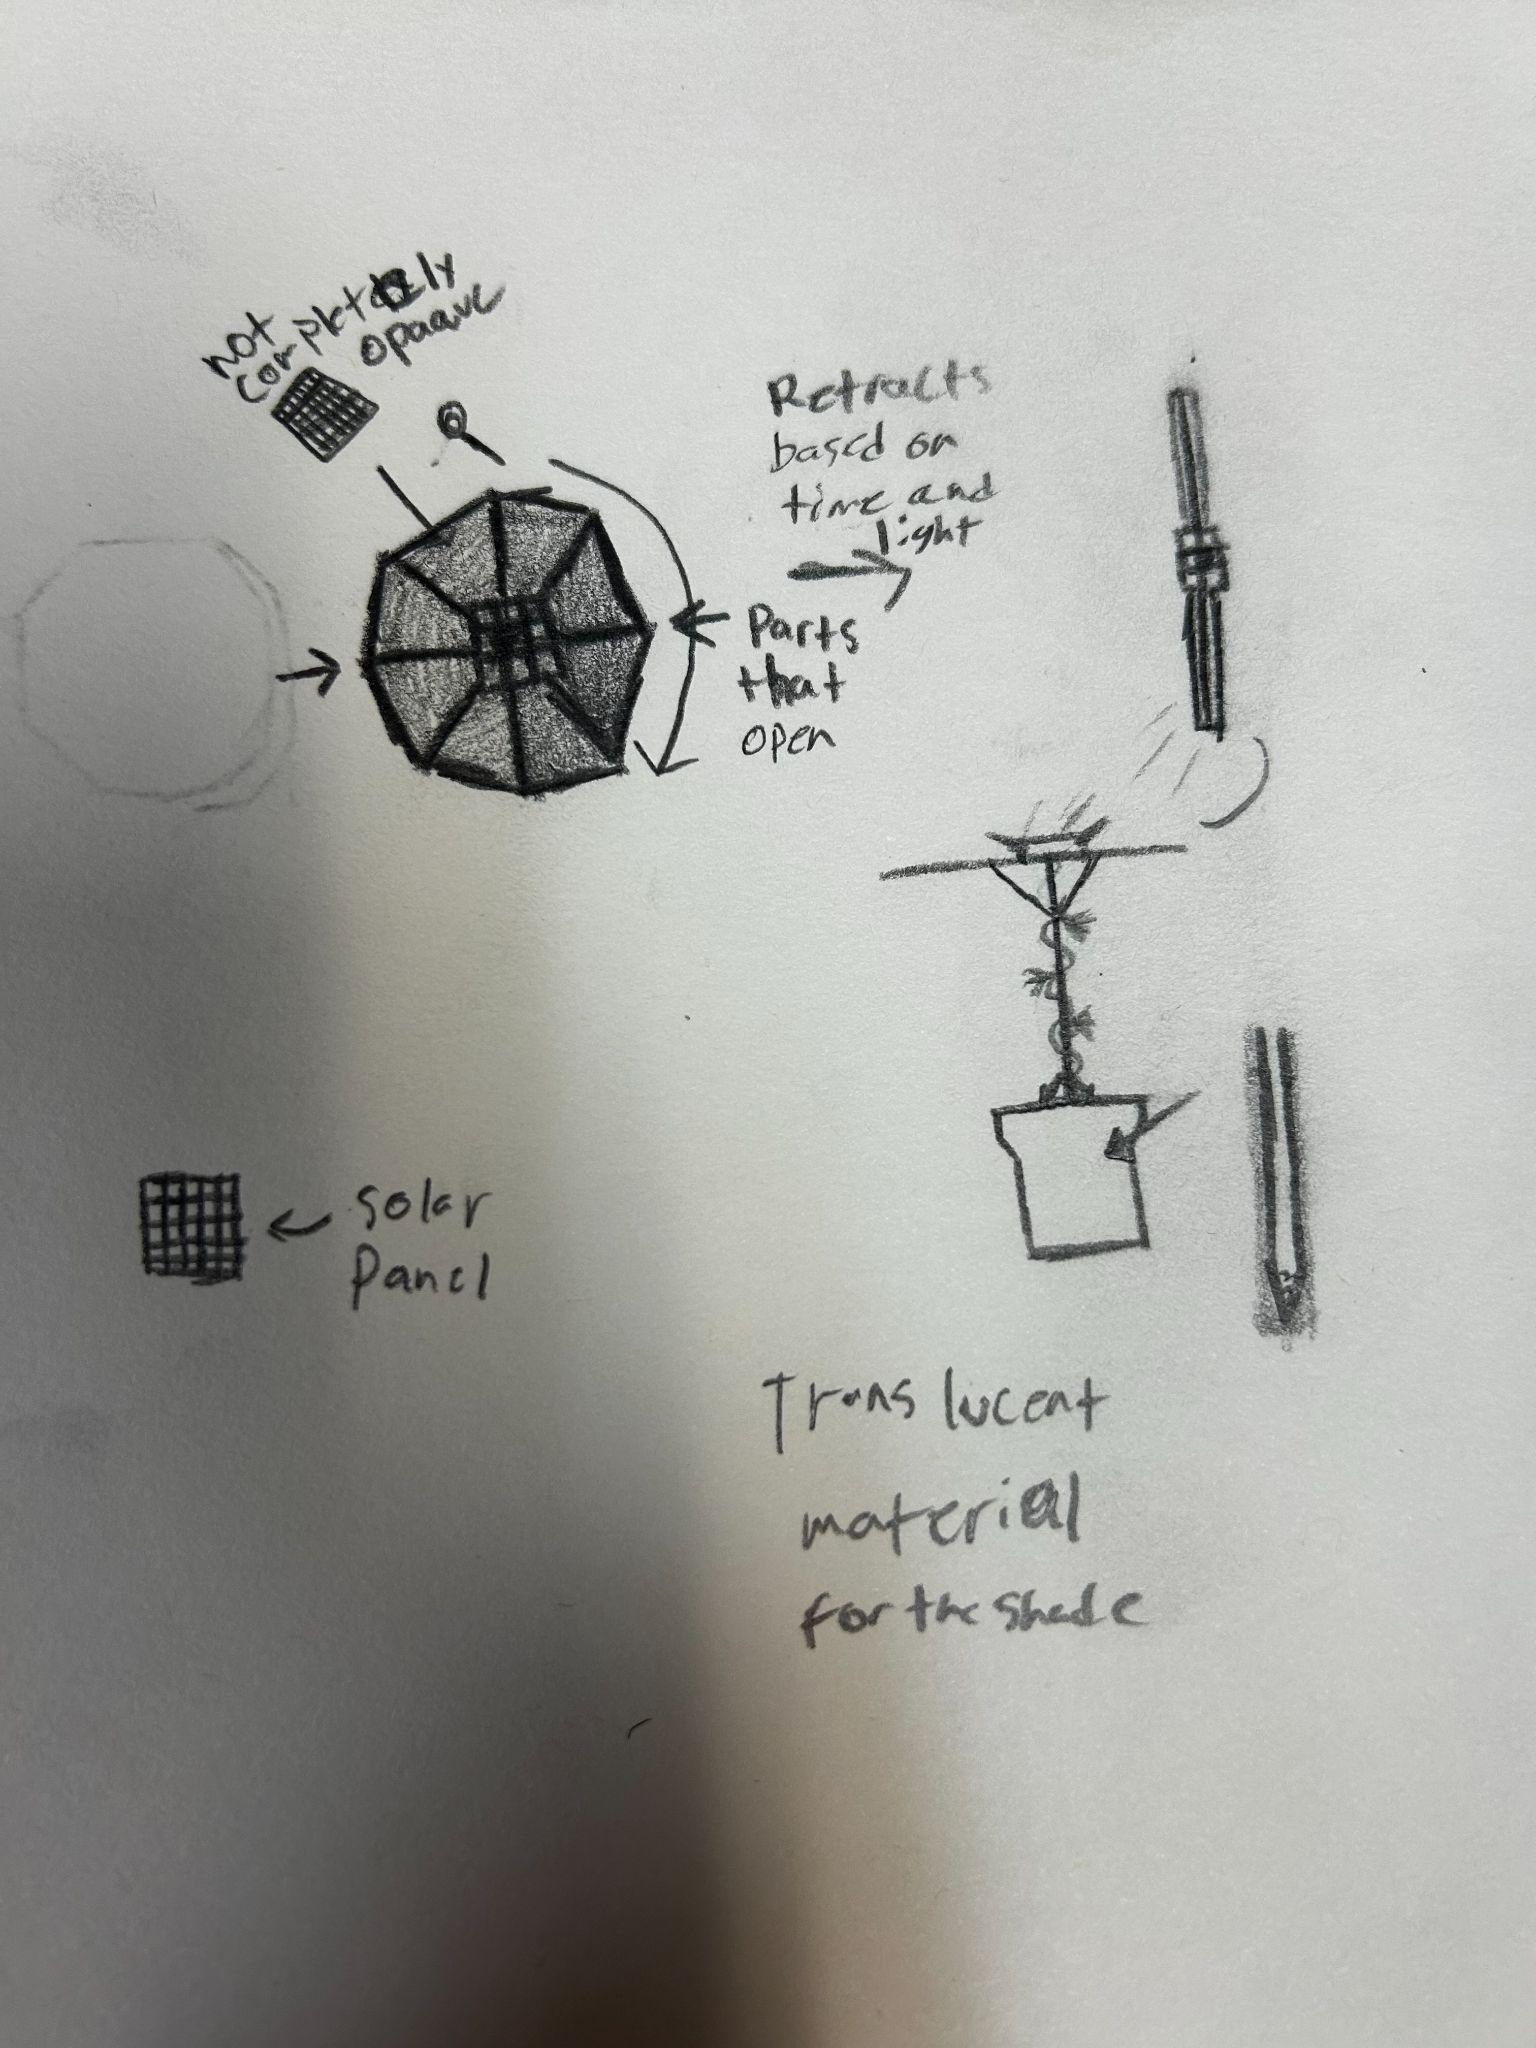 not
completely
opaque
Retracts
based on
time and
light
Parts
that
open
solar
Panel
Translucent
material
for the shade